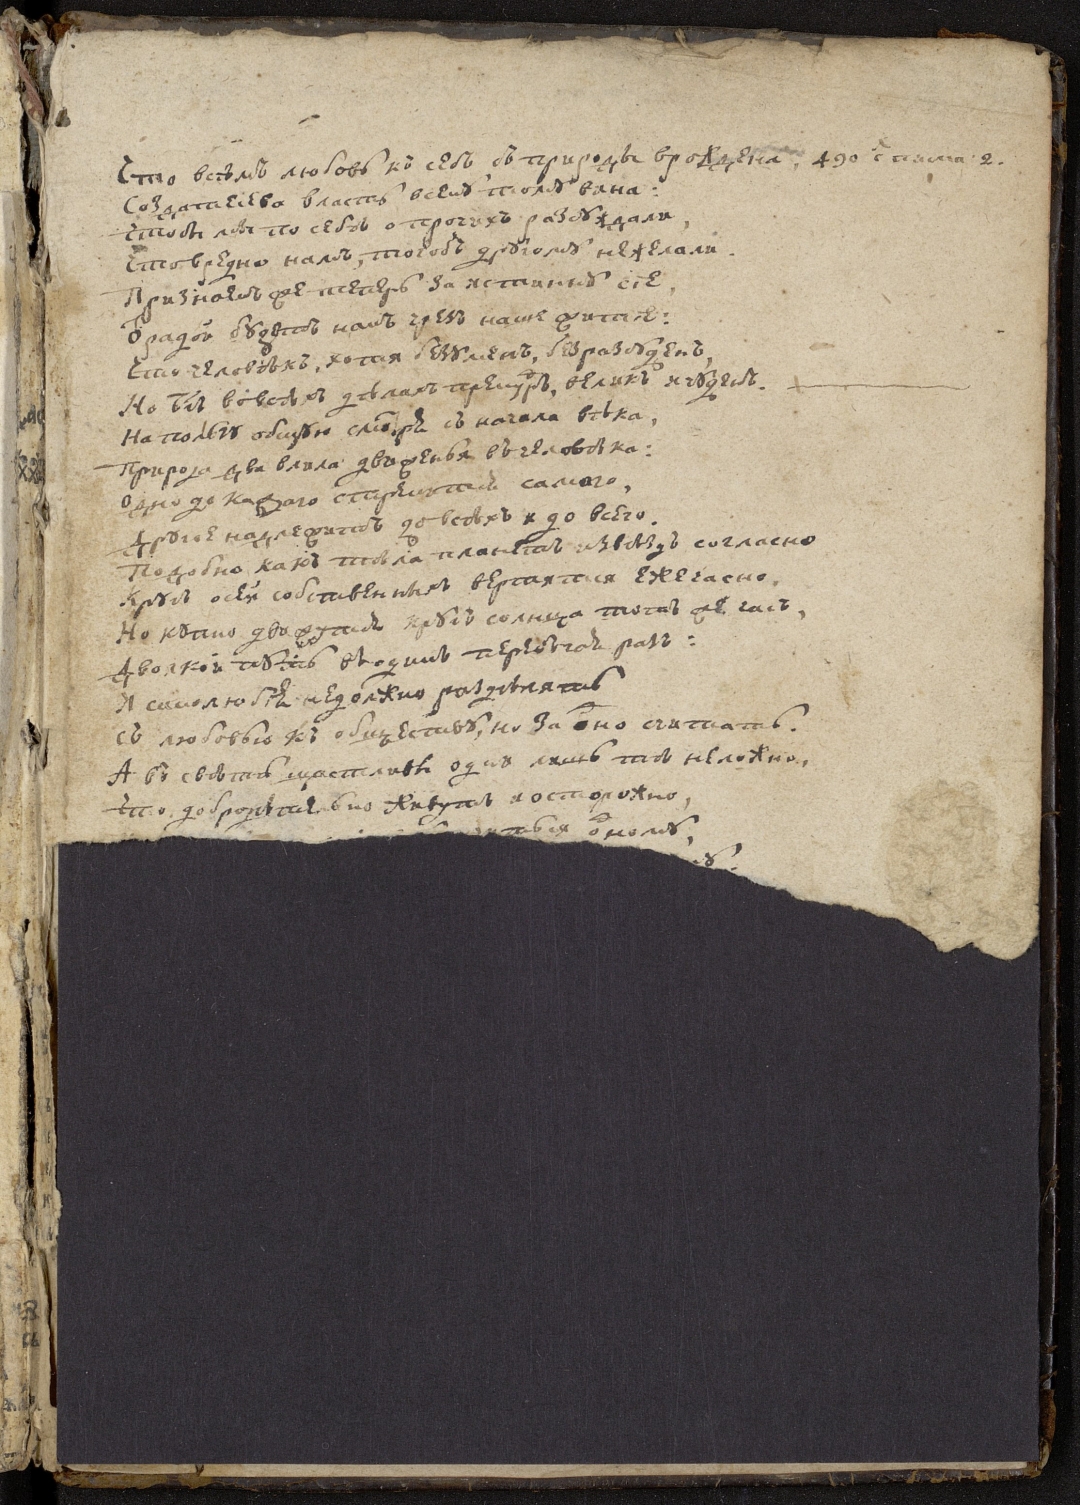 Что всѣмъ любовь къ себѣ съ природы врождена, 490 с писма 2.
Создателева власть всемꙋ томꙋ вина:
Чтобы мы по себѣ о прочихъ разсꙋждали,
Что вредно намъ, тогобъ дрꙋгомꙋ нежелали.
Признаемъ же теперь за истиннꙋ сіе,
Ѿрадой бꙋдетъ намъ чрезъ наше житіе:
Что человѣкъ, хотя безꙋменъ, безразсꙋденъ,
Но Бг҃ъ вовсѣхъ дѣлахъ премꙋдръ, великъ и чꙋденъ.
На ползꙋ общꙋю смотря съ начала вѣка,
Природа два влила движенья въ человѣка:
Одно до каждаго стремится самаго,
Дрꙋгое надлежитъ до всѣхъ и до всего.
Подобно какъ тѣла планетъ и звѣздъ согласно
Крꙋгъ осей собственныхъ вертятся ежечасно,
Но кꙋпно движꙋтся крꙋгъ солнца тотъ же часъ,
Двоякой пꙋть въ одинъ перебѣгая разъ:
И самолюбїя недолжно раздѣлять
Съ любовью къ обществꙋ, но за одно считать.
А въ свѣтѣ щастливы одни лишь тѣ неложно,
Что добродѣтельно живꙋтъ и осторожно,
ономꙋ,